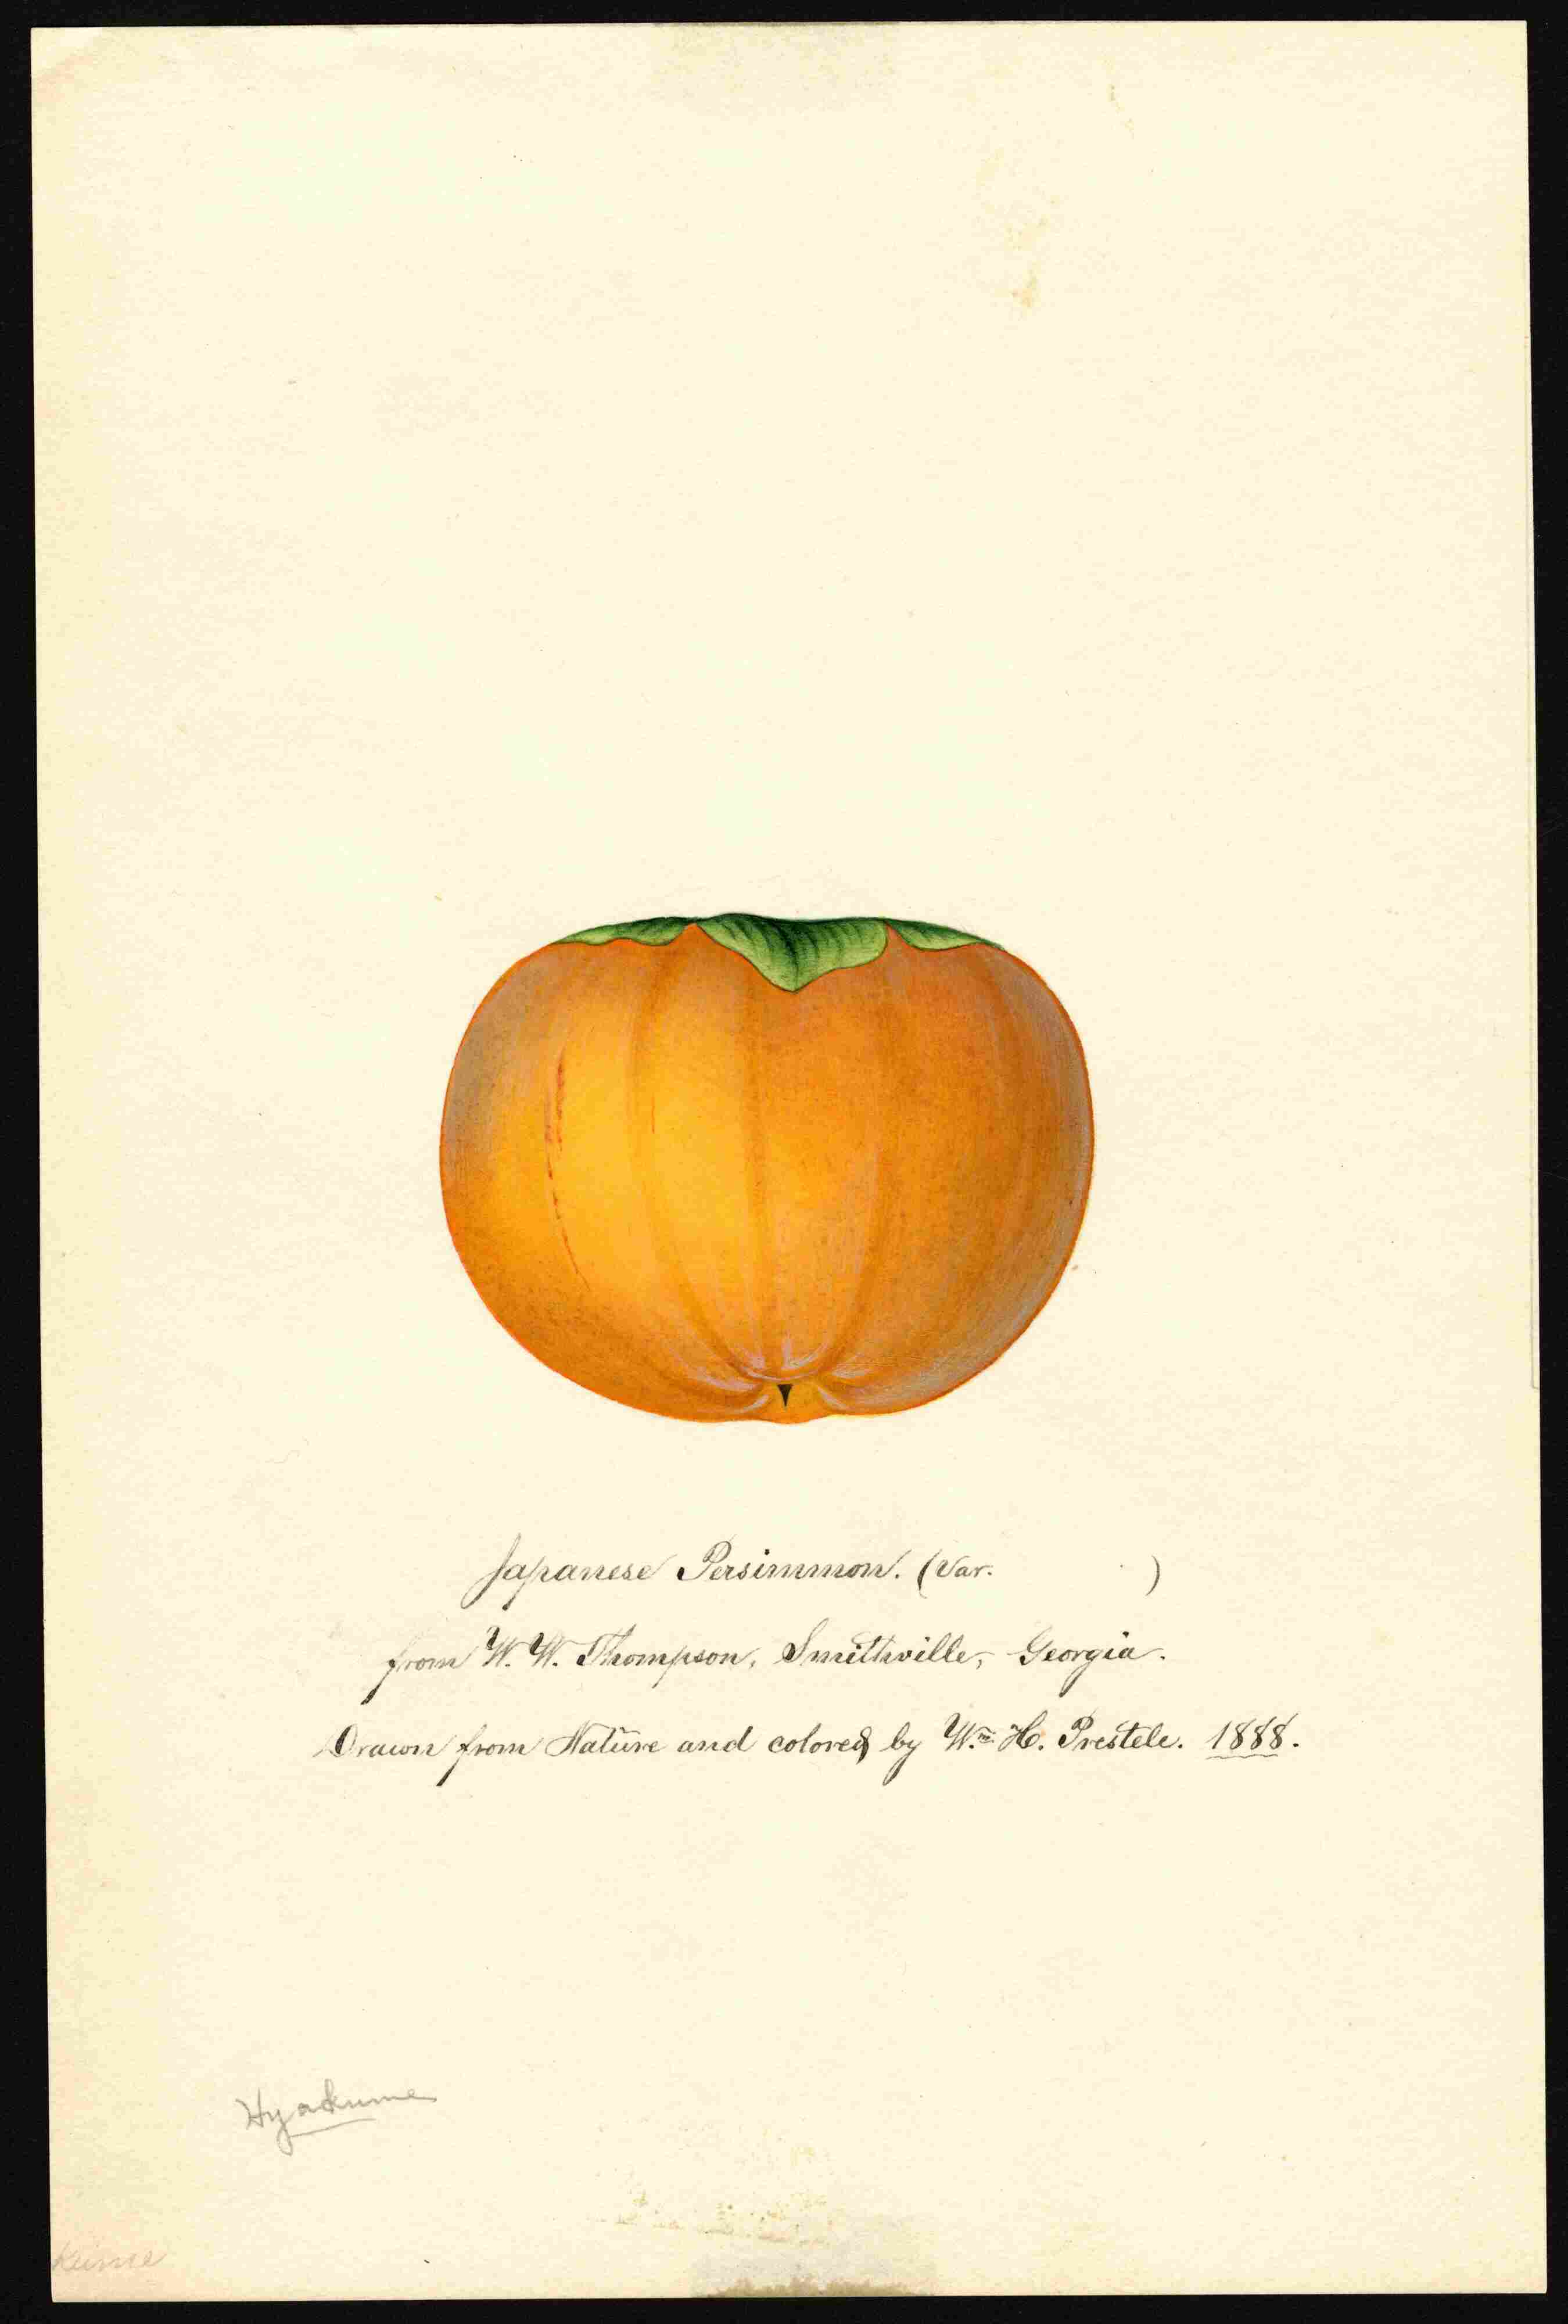 Japanese Persimmon. (Var. )
from W. W. Thompson, Smithville, Georgia.
Drawn from Nature and colored by Wm. H. Prestele. 1888.
Hyakume